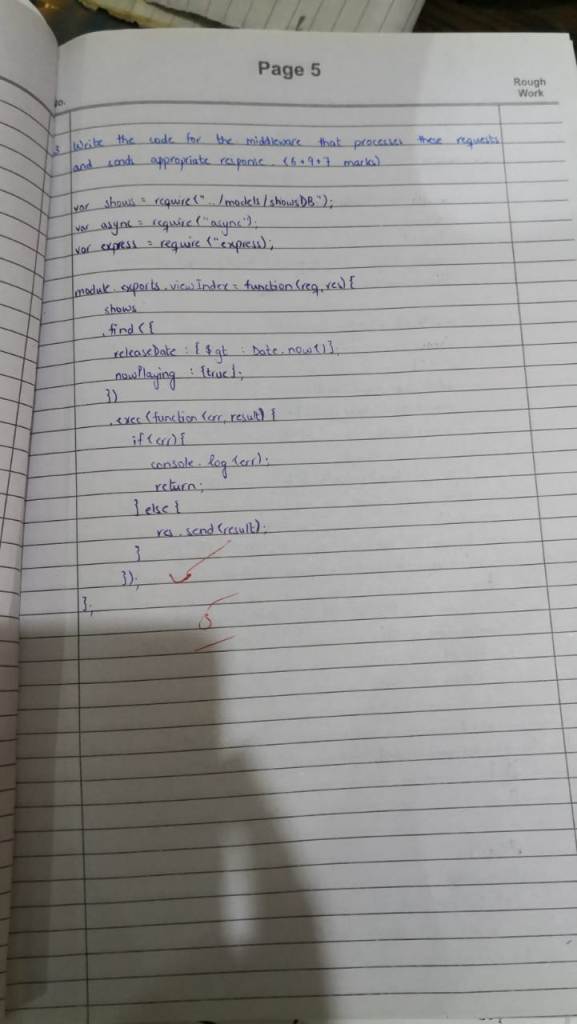 Page 5
Rough
Work
No.
3 Write the code for the middleware that processes these requests
and sends appropriate response. (6+9+7 marks)
var shows = require("../models/showsDB");
var async = require("async");
var express = require("express);
module.exports.viewIndex = function(req, res) {
shows
.find({
releaseDate : { $gt : Date.now()},
nowPlaying : {true};
})
.exec(function (err, result) {
if (err) {
console.log (err);
return;
} else {
res.send(result);
}
});
};